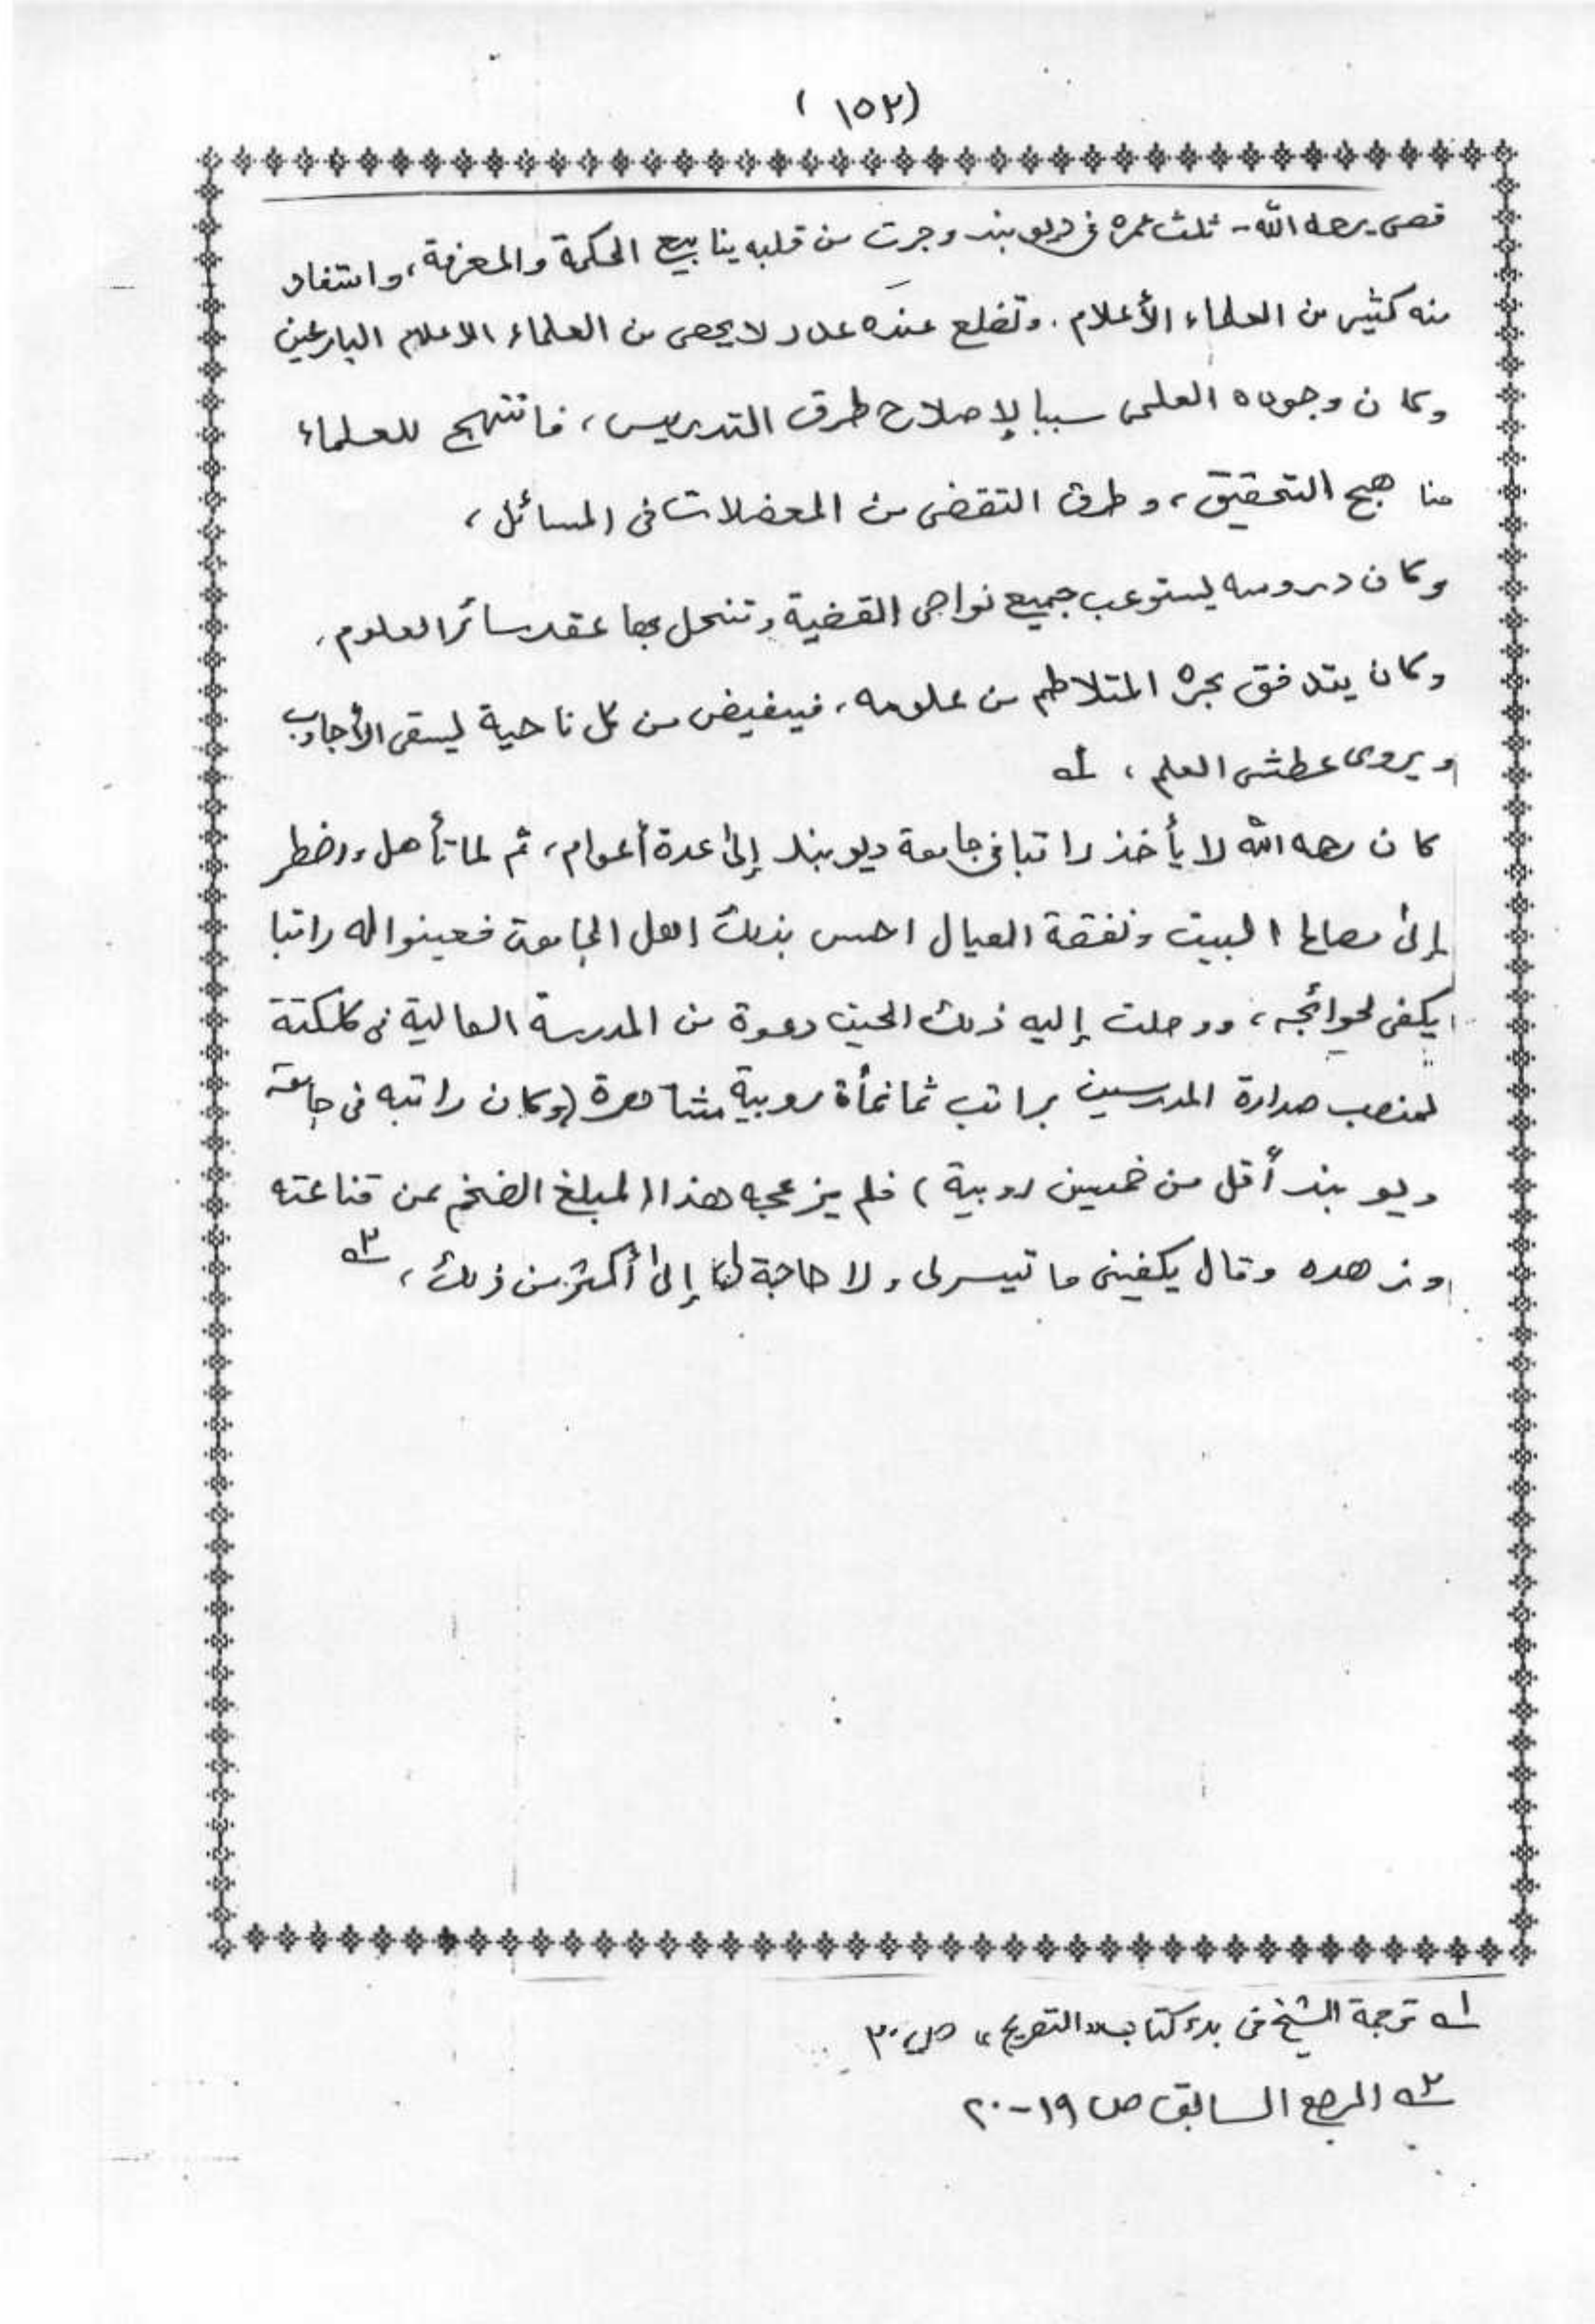 (١٥٢)
قصى رحمه الله - ثلث عمره فى ديوبند وجرت من قلبه ينابيع الحكمة والمعرفة، واستفاد
منه كثير من العلماء الأعلام. وتضلع عنده عدد لا يحصى من العلماء الاعلام البارعين
وكان وجوده العلمى سببا لإصلاح طرق التدريس، فانتهج للعلماء
مناهج التحقيق، وطرق التقضى من المعضلات فى المسائل،
وكان دروسه يستوعب جميع نواحى القضية وتنحل بها عقد سائر العلوم،
وكان يتدفق بحره المتلاطم من علومه، فيفيض من كل ناحية ليسقى الأجادب
ويروى عطشى العلم، ١ـه
كان رحمه الله لا يأخذ راتبا فى جامعة ديوبند إلى عدة أعوام، ثم لما تأهل واضطر
إلى مصالح البيت ونفقة العيال احس بذلك اهل الجامعة فعينوا له راتبا
يكفى لحوائجه، ووصلت إليه ذلك الحين دعوة من المدرسة العالية فى كلكتة
لمنصب صدارة المدرسين براتب ثمانمأة روبية مشاهرة (وكان راتبه فى جامعة
ديوبند أقل من خمسين روبية) فلم يزعجه هذا المبلغ الضخم عن قناعته
وزهده وقال يكفينى ما تيسر لى ولا حاجة لنا إلى أكثر من ذلك، ٢ـه
١ـه ترجمة الشيخ فى بدء كتاب "التصريح" ص ٢٠
٢ـه المرجع السابق ص ١٩-٢٠